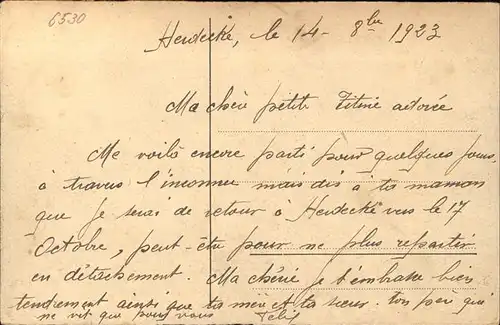 6530
Herdecke, le 14 - 8bre 1923
Ma chère petite Titine adorée
Me voilà encore parti pour quelques jours,
à travers l'inconnu mais dis à ta maman
que je serai de retour à Herdecke vers le 17
Octobre, peut-être pour ne plus repartir
en détachement. Ma chérie je t'embrasse bien
tendrement ainsi que ta mère et ta sœur. ton père qui
ne vit que pour vous